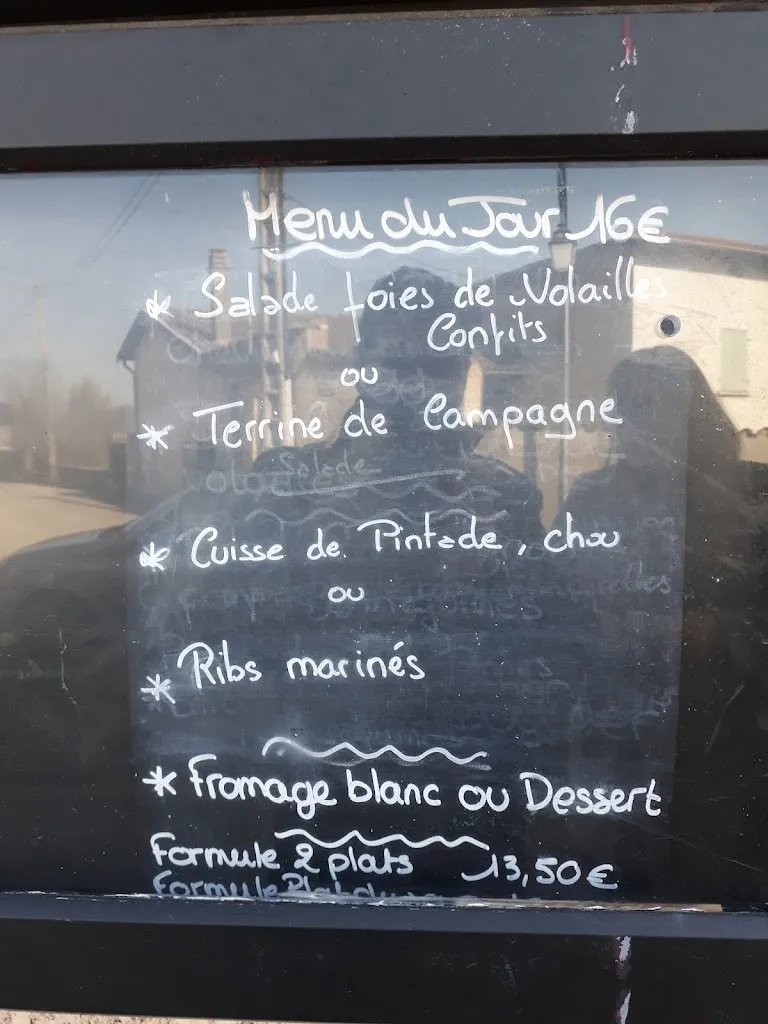 Menu du Jour 16€
* Salade foies de Volailles
Confits
ou
* Terrine de Campagne
Salade
* Cuisse de Pintade, chou
ou
* Ribs marinés
* Fromage blanc ou Dessert
Formule 2 plats 13,50€
Formule Plat du